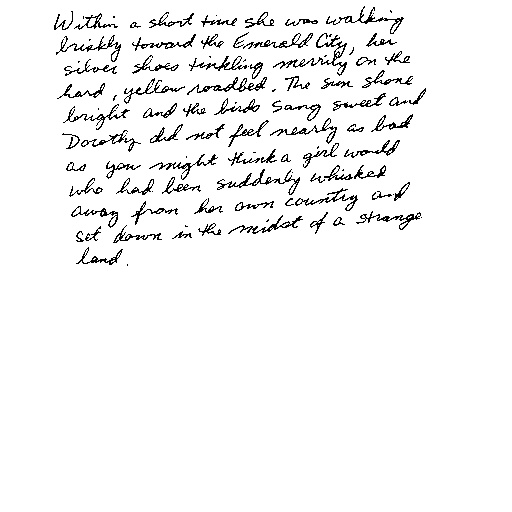 Within a short time she was walking
briskly toward the Emerald City, her
silver shoes tinkling merrily on the
hard, yellow roadbed. The sun shone
bright and the birds sang sweet and
Dorothy did not feel nearly as bad
as you might think a girl would
who had been suddenly whisked
away from her own country and
set down in the midst of a strange
land.